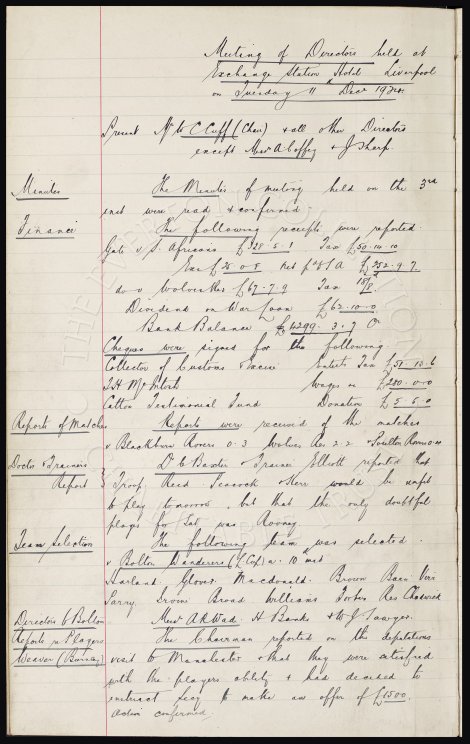 Meeting of Directors held at
Exchange Station Hotel Liverpool
on Tuesday 11 Decr 1924
Present Mr W C Cuff (Chair) & all other Directors
except Messrs A Coffey & J Sharp.
Minutes
The Minutes of meeting held on the 3rd
inst were read & confirmed.
Finance
The following receipts were reported.
Gate v S. Africans £328.5.1 Tax £50.14.10
Exes £25.0.8 net pd £252.9.7
do v Wolves Res £67.7.9 Tax 18/8
Dividend on War Loan £62.10.0
Bank Balance £4299.3.7 Cr
Cheques were signed for the following
Collector of Customs Excise Enterts Tax £51.13.6
J.H. McIntosh Wages £280.0.0
Catton Testimonial Fund Donation £5.5.0
Reports of Matches
Reports were received of the matches
v Blackburn Rovers 0.3 Wolves Res 2.2
Doctor & Trainers
Report
Dr C Baxter & Trainer Elliott reported that
Troup Reid Peacock & Kerr would be unfit
to play tomorrow, but that the only doubtful
player for Sat was Rooney
Team Selection
The following team was selected
v Bolton Wanderers
Harland Glover Macdonald Brown Bain Virr
Parry Irvine Broad Williams Forbes Res Chadwick
Directors to Bolton
Messrs A R Wade H Banks & W J Sawyer.
Reports re Players
Weaver (Burnley)
The Chairman reported on the deputations
visit to Manchester & that they were satisfied
with the players ability & had decided to
instruct Secy to make an offer of £1500.
Action confirmed.